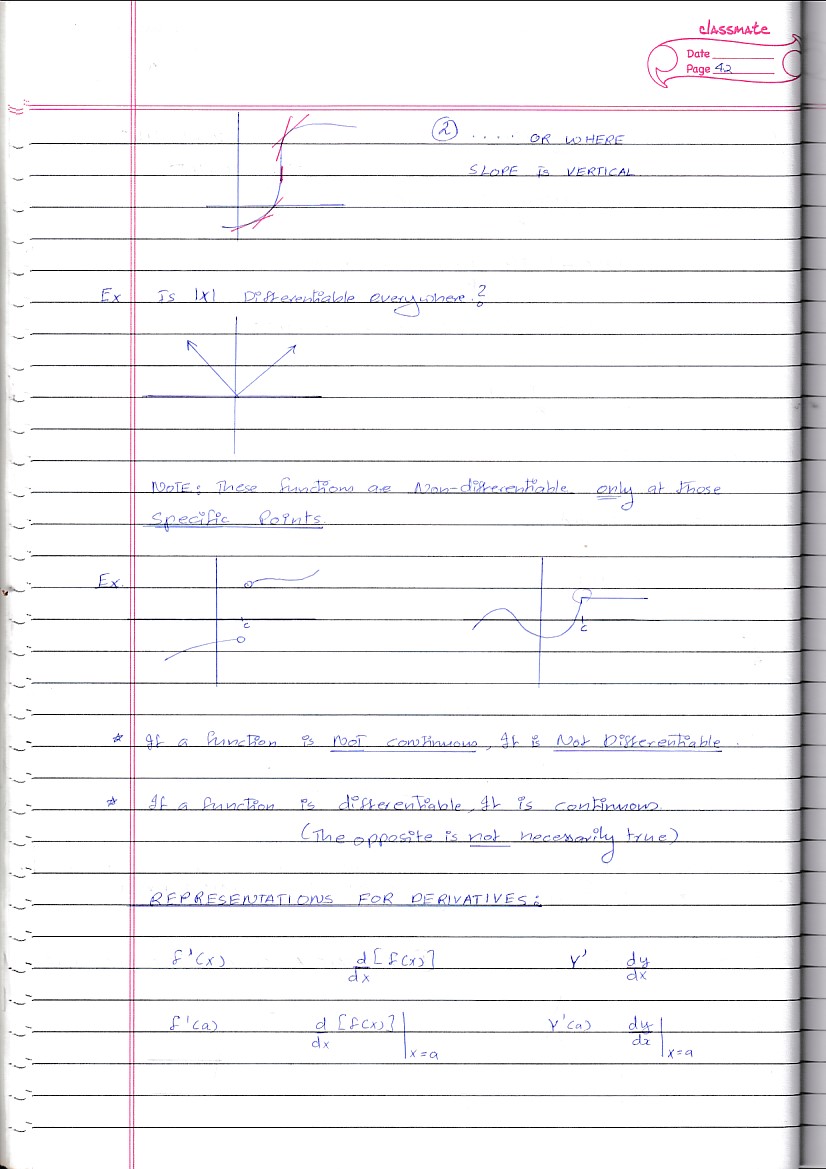 classmate
Date
Page 42
② .... OR WHERE
SLOPE is VERTICAL
Ex Is |X| Differentiable everywhere?
NOTE: These functions are Non-differentiable only at those
Specific Points.
Ex.
c
c
* If a function is NOT continuous, It is Not Differentiable.
* If a function is differentiable, It is continuous.
(The opposite is not necessarily true)
REPRESENTATIONS FOR DERIVATIVES:
f'(x) d/dx [f(x)] Y' dy/dx
f'(a) d/dx [f(x)] |x=a Y'(a) dy/dx |x=a